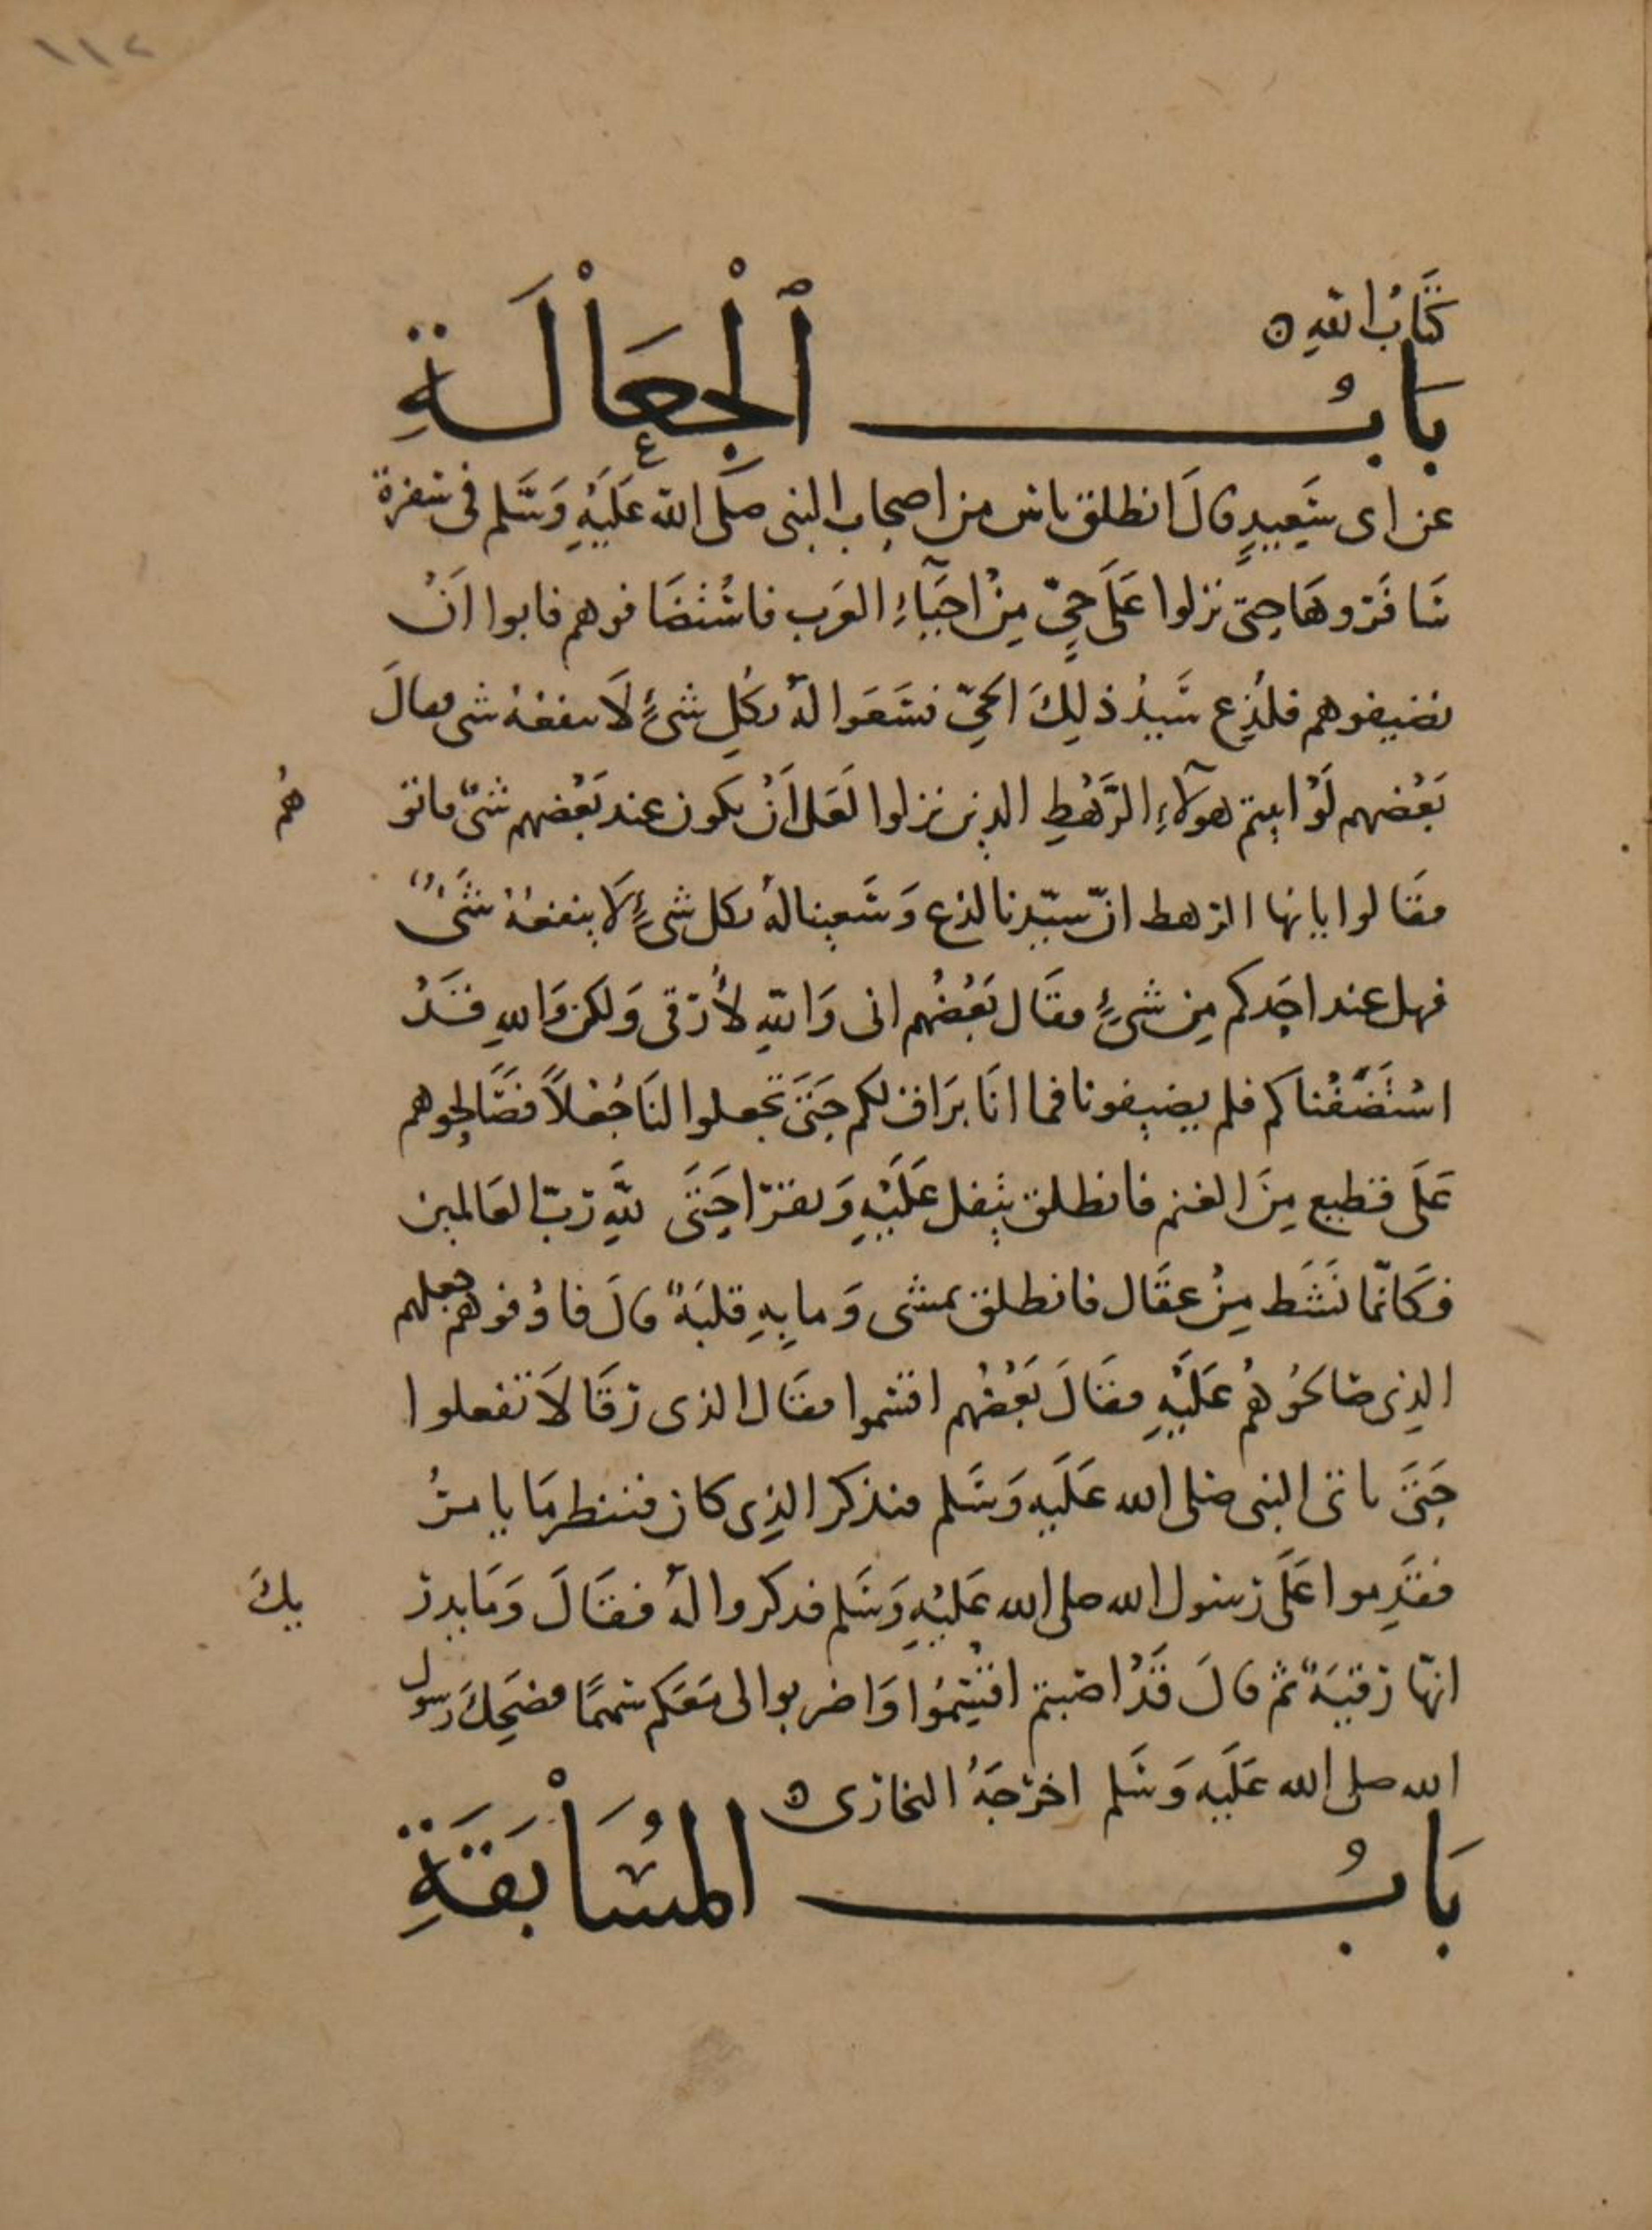 ١١٢
كتَابُ اللّهِ ه
بَابُ ٱلْجِعَاْلَةِ
عن ابى سَعِيدٍ قالَ انطلق ناس من اصحاب النبى صلَّى اللّه عَلَيْهِ وَسَّلم فى سفرة
سَافَروهَا حتى نزلوا عَلَى حيٍّ مِنْ احيَآءِ العَرب فاسْتضَافوهم فابوا اَنْ
يضيفوهم فلُدِغ سَيدُ ذلِكَ الحيّ فسَعَوا لهُ بكُلِ شىءٍ لَا ينفعهُ شى فقالَ
بَعْضهم لَوْ اتيتم هولآءِ الرَّهْطِ الذِين نزلوا لَعَل اَنْ يكون عند بَعْضهم شىءٌ فاتو
هُم
فقَالوا يايها الرهط انّ سيّدنا لدغ وَسَعينا لهُ بكل شىءٍ لَا ينفعهُ شَىءٌ
فهل عند احَدكم مِن شىءٍ فقَال بَعْضُهم انى وَاللّهِ لأَرقى وَلكن وَاللهِ قَدْ
اسْتَضَفْناكم فلم يضيفونا فما انَا برَاق لكم حَتىَ تجعلوا لنَا جُعْلاً فصَالحوهم
عَلَى قطيع مِنَ الغنم فانطلق يتفل عَلَيْهِ وَيقرَا حَتىَ للّهِ رَبّ العَالمين
فكَانمّا نَشَط مِنْ عقَال فانطلق يمشى وَما بِهِ قلبَةٌ قالَ فاوْفوهم جعلهم
الذِى صَالحُوهُم عَلَيْهِ فقَالَ بَعْضُهم اقسموا فقَال الذى رَقَا لَا تفعلوا
حَتىَ ناتى النبى صلى الله عَلَيهِ وَسَلم فنذكر الذِى كان فننظر مَا يامرُ
فقَدِموا عَلَى رَسول الله صلى الله عَليْهِ وَسَلم فدكروا لهُ فقَالَ وَمَا يدر
يكَ
انهّا رَقيَةٌ ثم قالَ قَدْ اصَبتم اقتْسِمُوا وَاضربوا لى مَعَكم سَهمًا فضَحِكَ رسول
الله صلى الله عَلَيهِ وَسَلم اخرَجَهُ البخارى ه
بَابُ المُسَاْبَقَةِ